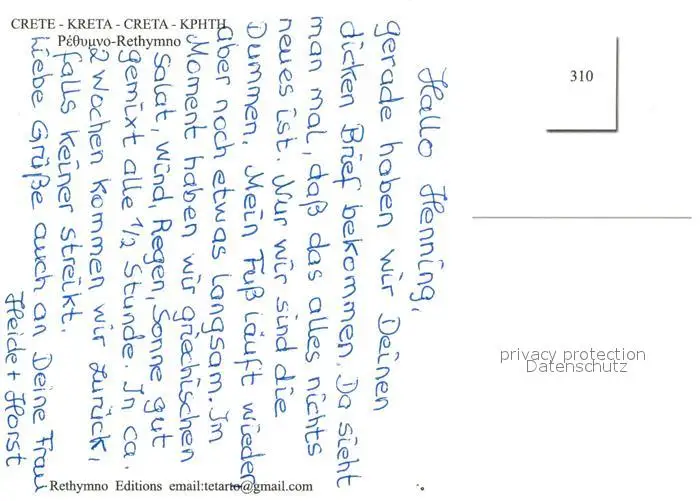 CRETE - KRETA - CRETA - KPHTH
Ρέθυμνο-Rethymno
310
Hallo Henning,
gerade haben wir Deinen
dicken Brief bekommen. Da sieht
man mal, daß das alles nichts
neues ist. Nur wir sind die
Dummen. Mein Fuß läuft wieder
aber noch etwas langsam. Im
Moment haben wir griechischen
Salat, Wind, Regen, Sonne gut
gemixt alle 1/2 Stunde. In ca.
2 Wochen kommen wir zurück,
falls keiner streikt.
Liebe Grüße auch an Deine Frau
Heide + Horst
privacy protection
Datenschutz
Rethymno Editions email:tetarto@gmail.com